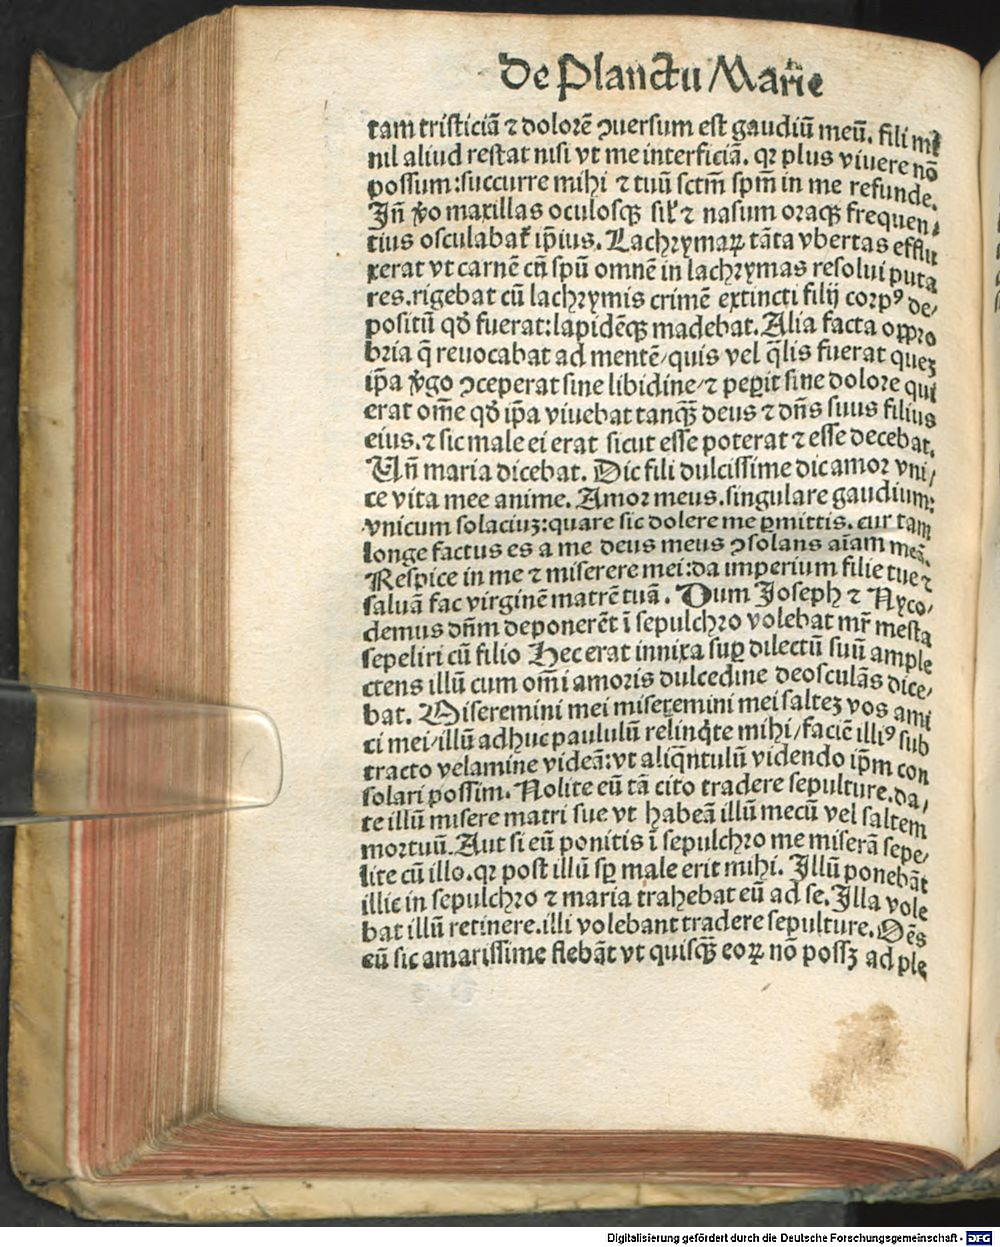 De Planctu Marie
tam tristiciā ⁊ dolorē ꝯuersum est gaudiū meū. fili mi
nil aliud restat nisi vt me interficiā. qꝛ plus viuere nō
possum: succurre mihi ⁊ tuū sctm̄ spm̄ in me refunde.
In̄ v̊o maxillas oculosqꝫ sil̄r ⁊ nasum oraqꝫ frequen⸗
tius osculabat̄ ip̄ius. Lachrymaꝝ tāta vbertas efflu
xerat vt carnē cū spū omnē in lachrymas resolui puta
res. rigebat cū lachrymis crimē extincti filij corpꝰ de/
positū qd̓ fuerat: lapidēqꝫ madebat. Alia facta oppro
bria q̄ reuocabat ad mentē/ quis vel q̄lis fuerat queꝫ
ip̄a v̓go ꝯceperat sine libidine/ ⁊ peꝑit sine dolore qui
erat om̄e qd̓ ip̄a viuebat tanqꝫ̄ deus ⁊ dn̄s suus filius
eius. ⁊ sic male ei erat sicut esse poterat ⁊ esse decebat.
Un̄ maria dicebat. Dic fili dulcissime dic amor vni/
ce vita mee anime. Amor meus. singulare gaudium:
vnicum solaciuꝫ: quare sic dolere me ꝑmittis. cur tam
longe factus es a me deus meus ꝯsolans aīam meā.
Respice in me ⁊ miserere mei: da imperium filie tue ⁊
saluā fac virginē matrē tuā. Dum Joseph ⁊ Nyco/
demus dn̄m deponerēt ī sepulchro volebat mr̄ mesta
sepeliri cū filio Hec erat innixa suꝑ dilectū suū ample
ctens illū cum om̄i amoris dulcedine deosculās dice/
bat. Miseremini mei miseremini mei salteꝫ vos ami
ci mei/ illū adhuc paululū relinq̄te mihi/ faciē illiꝰ sub
tracto velamine videā: vt aliqn̄tulū videndo ip̄m con
solari possim. Nolite eū tā cito tradere sepulture. da/
te illū misere matri sue vt habeā illū mecū vel saltem
mortuū. Aut si eū ponitis ī sepulchro me miserā sepe/
lite cū illo. qꝛ post illū sꝑ male erit mihi. Illū ponebāt
illic in sepulchro ⁊ maria trahebat eū ad se. Illa vole
bat illū retinere. illi volebant tradere sepulture. Oēs
eū sic amarissime flebāt vt quisqꝫ̄ eoꝝ nō possꝫ ad ple
Digitalisierung gefördert durch die Deutsche Forschungsgemeinschaft - DFG